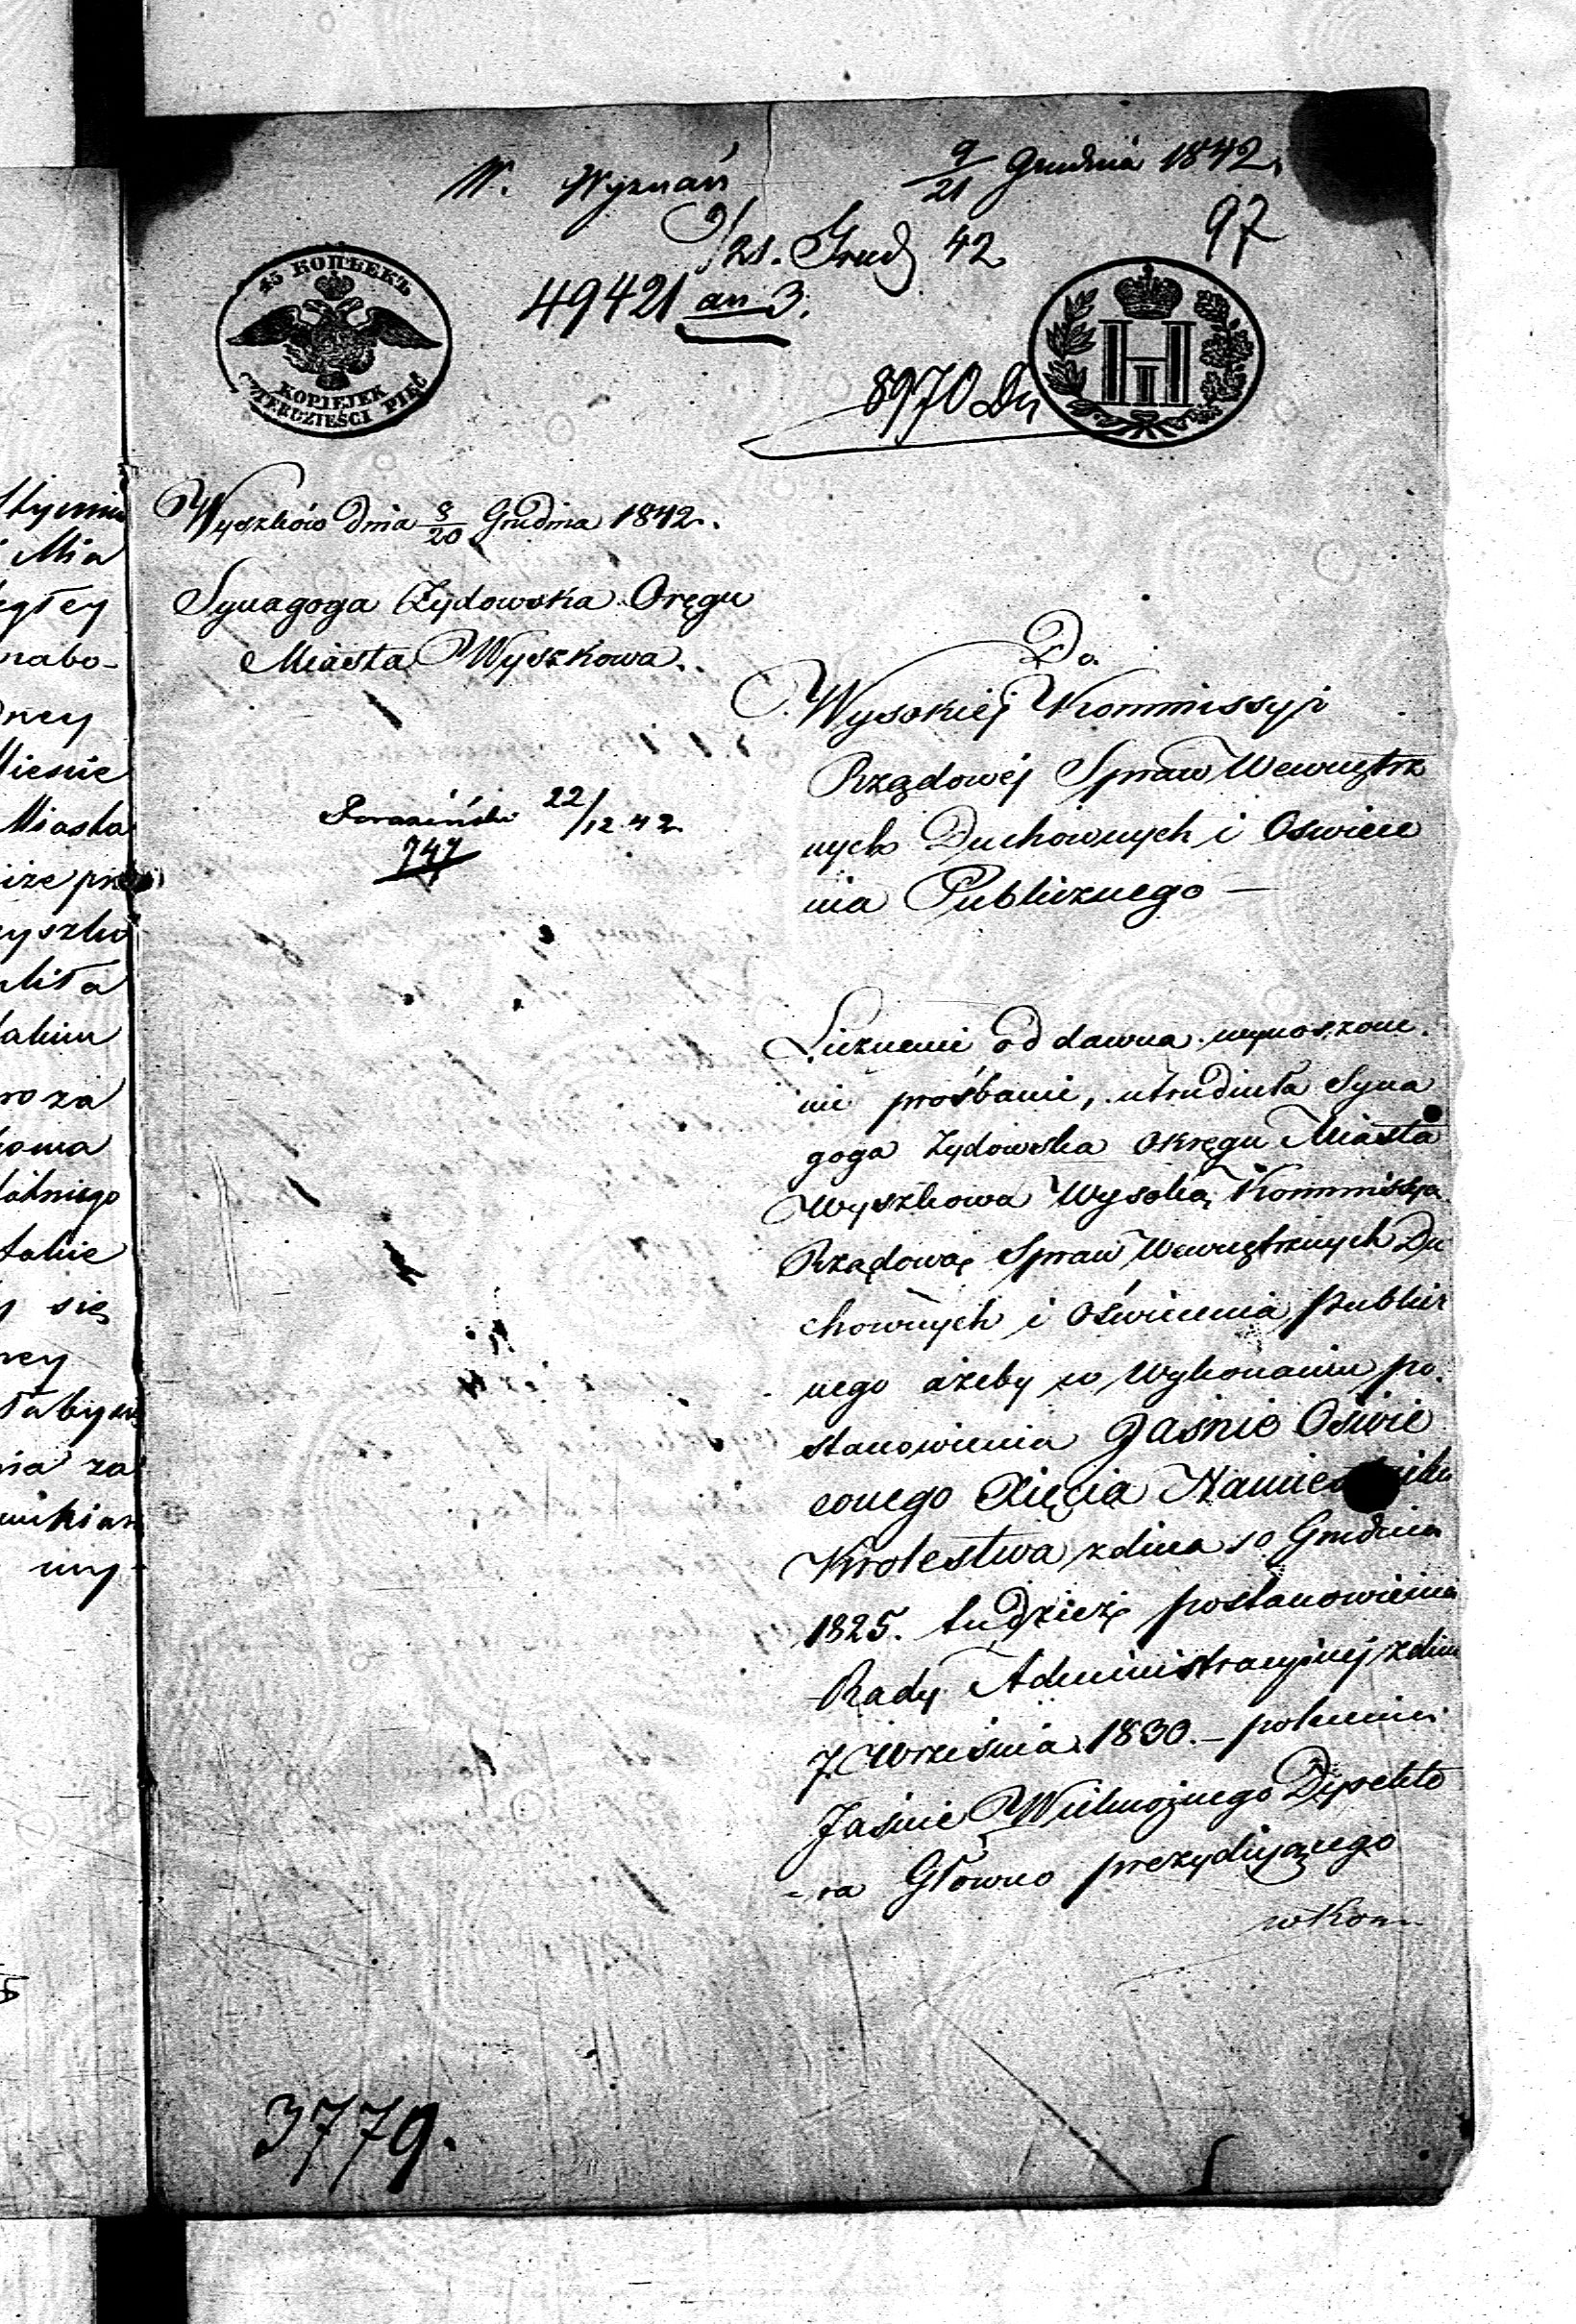 W. Wyznań
9/21 Grudnia 1842.
97
9/21. Grud 42
49421 an 3.
8970 Du
45 КОПѢЕКЪ
KOPIEJEK
CZTERDZIEŚCI PIĘĆ
Wyszków dnia 8/20 Grudnia 1842.
Synagoga Żydowska Oręgu
Miasta Wyszkowa.
22/12 42
747
Do
Wysokiej Kommissyi
Rządowéj Spraw Wewnętrz
nych Duchownych i Oswiece
nia Publicznego —
Licznemi od dawna wynoszone.
mi prośbami, utrudniła Syna
goga Żydowska Okręgu Miasta
Wyszkowa Wysoką Kommissya
Rządową Spraw Wewnętrznych Du
chownych i Oświecenia Publicz
nego ażeby w Wykonaniu po.
stanowienia Jaśnie Oświe
conego Xięcia Namiestnika
Krolestwa z dnia 10 Grudnia
1825. tudzież postanowienia
Rady Administracyjnéj z dnia
7. Września 1830. – polecenia
Jaśnie Wielmożnego Dyrekto
-ra Główno prezydującego
w Kom
3779.
Mia
nabo-
Miasta
takie
się